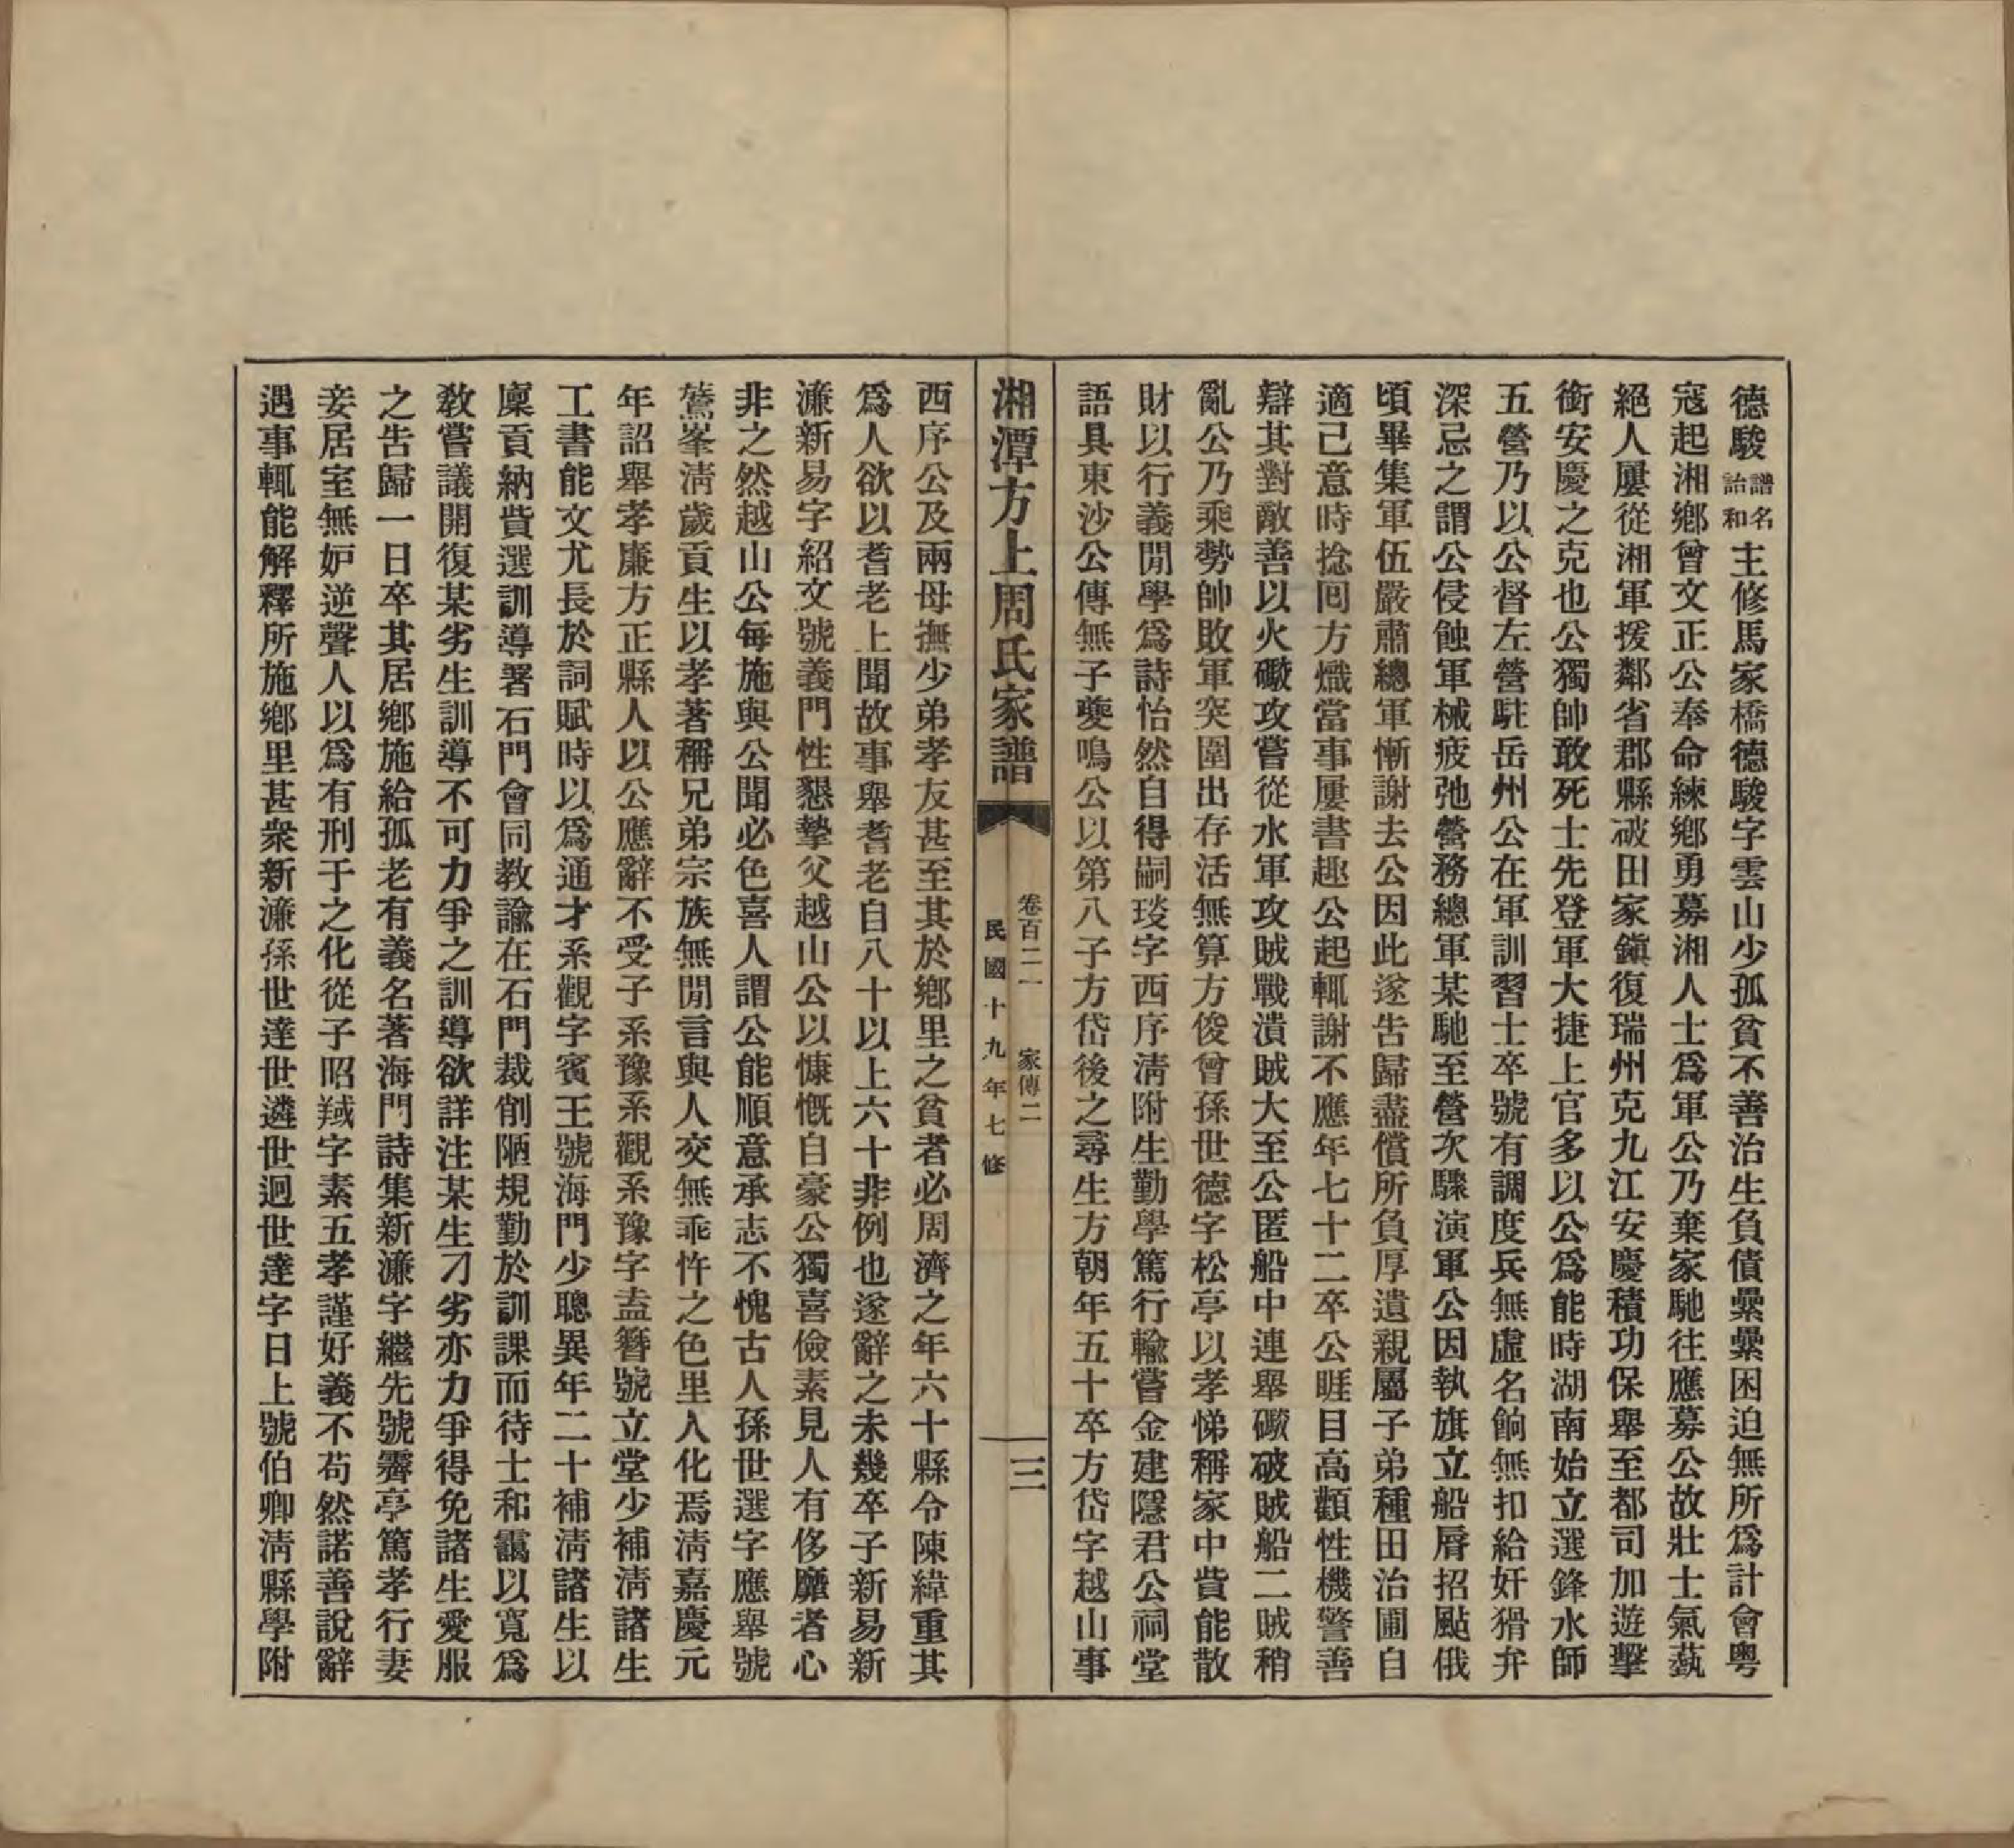 德駿譜名詒和主修馬家橋德駿字雲山少孤貧不善治生負債纍纍困迫無所爲計會粵
寇起湘鄉曾文正公奉命練鄉勇募湘人士爲軍公乃棄家馳往應募公故壯士氣蓺
絕人屢從湘軍援鄰省郡縣破田家鎭復瑞州克九江安慶積功保舉至都司加遊擊
銜安慶之克也公獨帥敢死士先登軍大捷上官多以公爲能時湖南始立選鋒水師
五營乃以公督左營駐岳州公在軍訓習士卒號有調度兵無虛名餉無扣給奸猾弁
深忌之謂公侵蝕軍械疲弛營務總軍某馳至營次驟演軍公因執旗立船脣招颭俄
頃畢集軍伍嚴肅總軍慚謝去公因此遂告歸盡償所負厚遺親屬子弟種田治圃自
適己意時捻囘方熾當事屢書趣公起輒謝不應年七十二卒公睚目高顴性機警善
辯其對敵善以火礮攻嘗從水軍攻賊戰潰賊大至公匿船中連舉礮破賊船二賊稍
亂公乃乘勢帥敗軍突圍出存活無算方俊曾孫世德字松亭以孝悌稱家中貲能散
財以行義閒學爲詩怡然自得嗣琰字西序淸附生勤學篤行輸嘗金建隱君公祠堂
語具東沙公傳無子夔鳴公以第八子方岱後之尋生方朝年五十卒方岱字越山事
湘潭方上周氏家譜
卷百二一 家傳二
民國十九年七修
三
西序公及兩母撫少弟孝友甚至其於鄉里之貧者必周濟之年六十縣令陳緯重其
爲人欲以耆老上聞故事舉耆老自八十以上六十非例也遂辭之未幾卒子新易新
濂新易字紹文號義門性懇摯父越山公以慷慨自豪公獨喜儉素見人有侈靡者心
非之然越山公每施與公聞必色喜人謂公能順意承志不愧古人孫世選字應舉號
鶯峯淸歲貢生以孝著稱兄弟宗族無閒言與人交無乖忤之色里人化焉淸嘉慶元
年詔舉孝廉方正縣人以公應辭不受子系豫系觀系豫字盍簪號立堂少補淸諸生
工書能文尤長於詞賦時以爲通才系觀字賓王號海門少聰異年二十補淸諸生以
廩貢納貲選訓導署石門會同敎諭在石門裁削陋規勤於訓課而待士和靄以寬爲
敎嘗議開復某劣生訓導不可力爭之訓導欲詳注某生刁劣亦力爭得免諸生愛服
之告歸一日卒其居鄉施給孤老有義名著海門詩集新濂字繼先號霽亭篤孝行妻
妾居室無妒逆聲人以爲有刑于之化從子昭羢字素五孝謹好義不苟然諾善說辭
遇事輒能解釋所施鄉里甚衆新濂孫世達世遴世迥世達字日上號伯卿淸縣學附